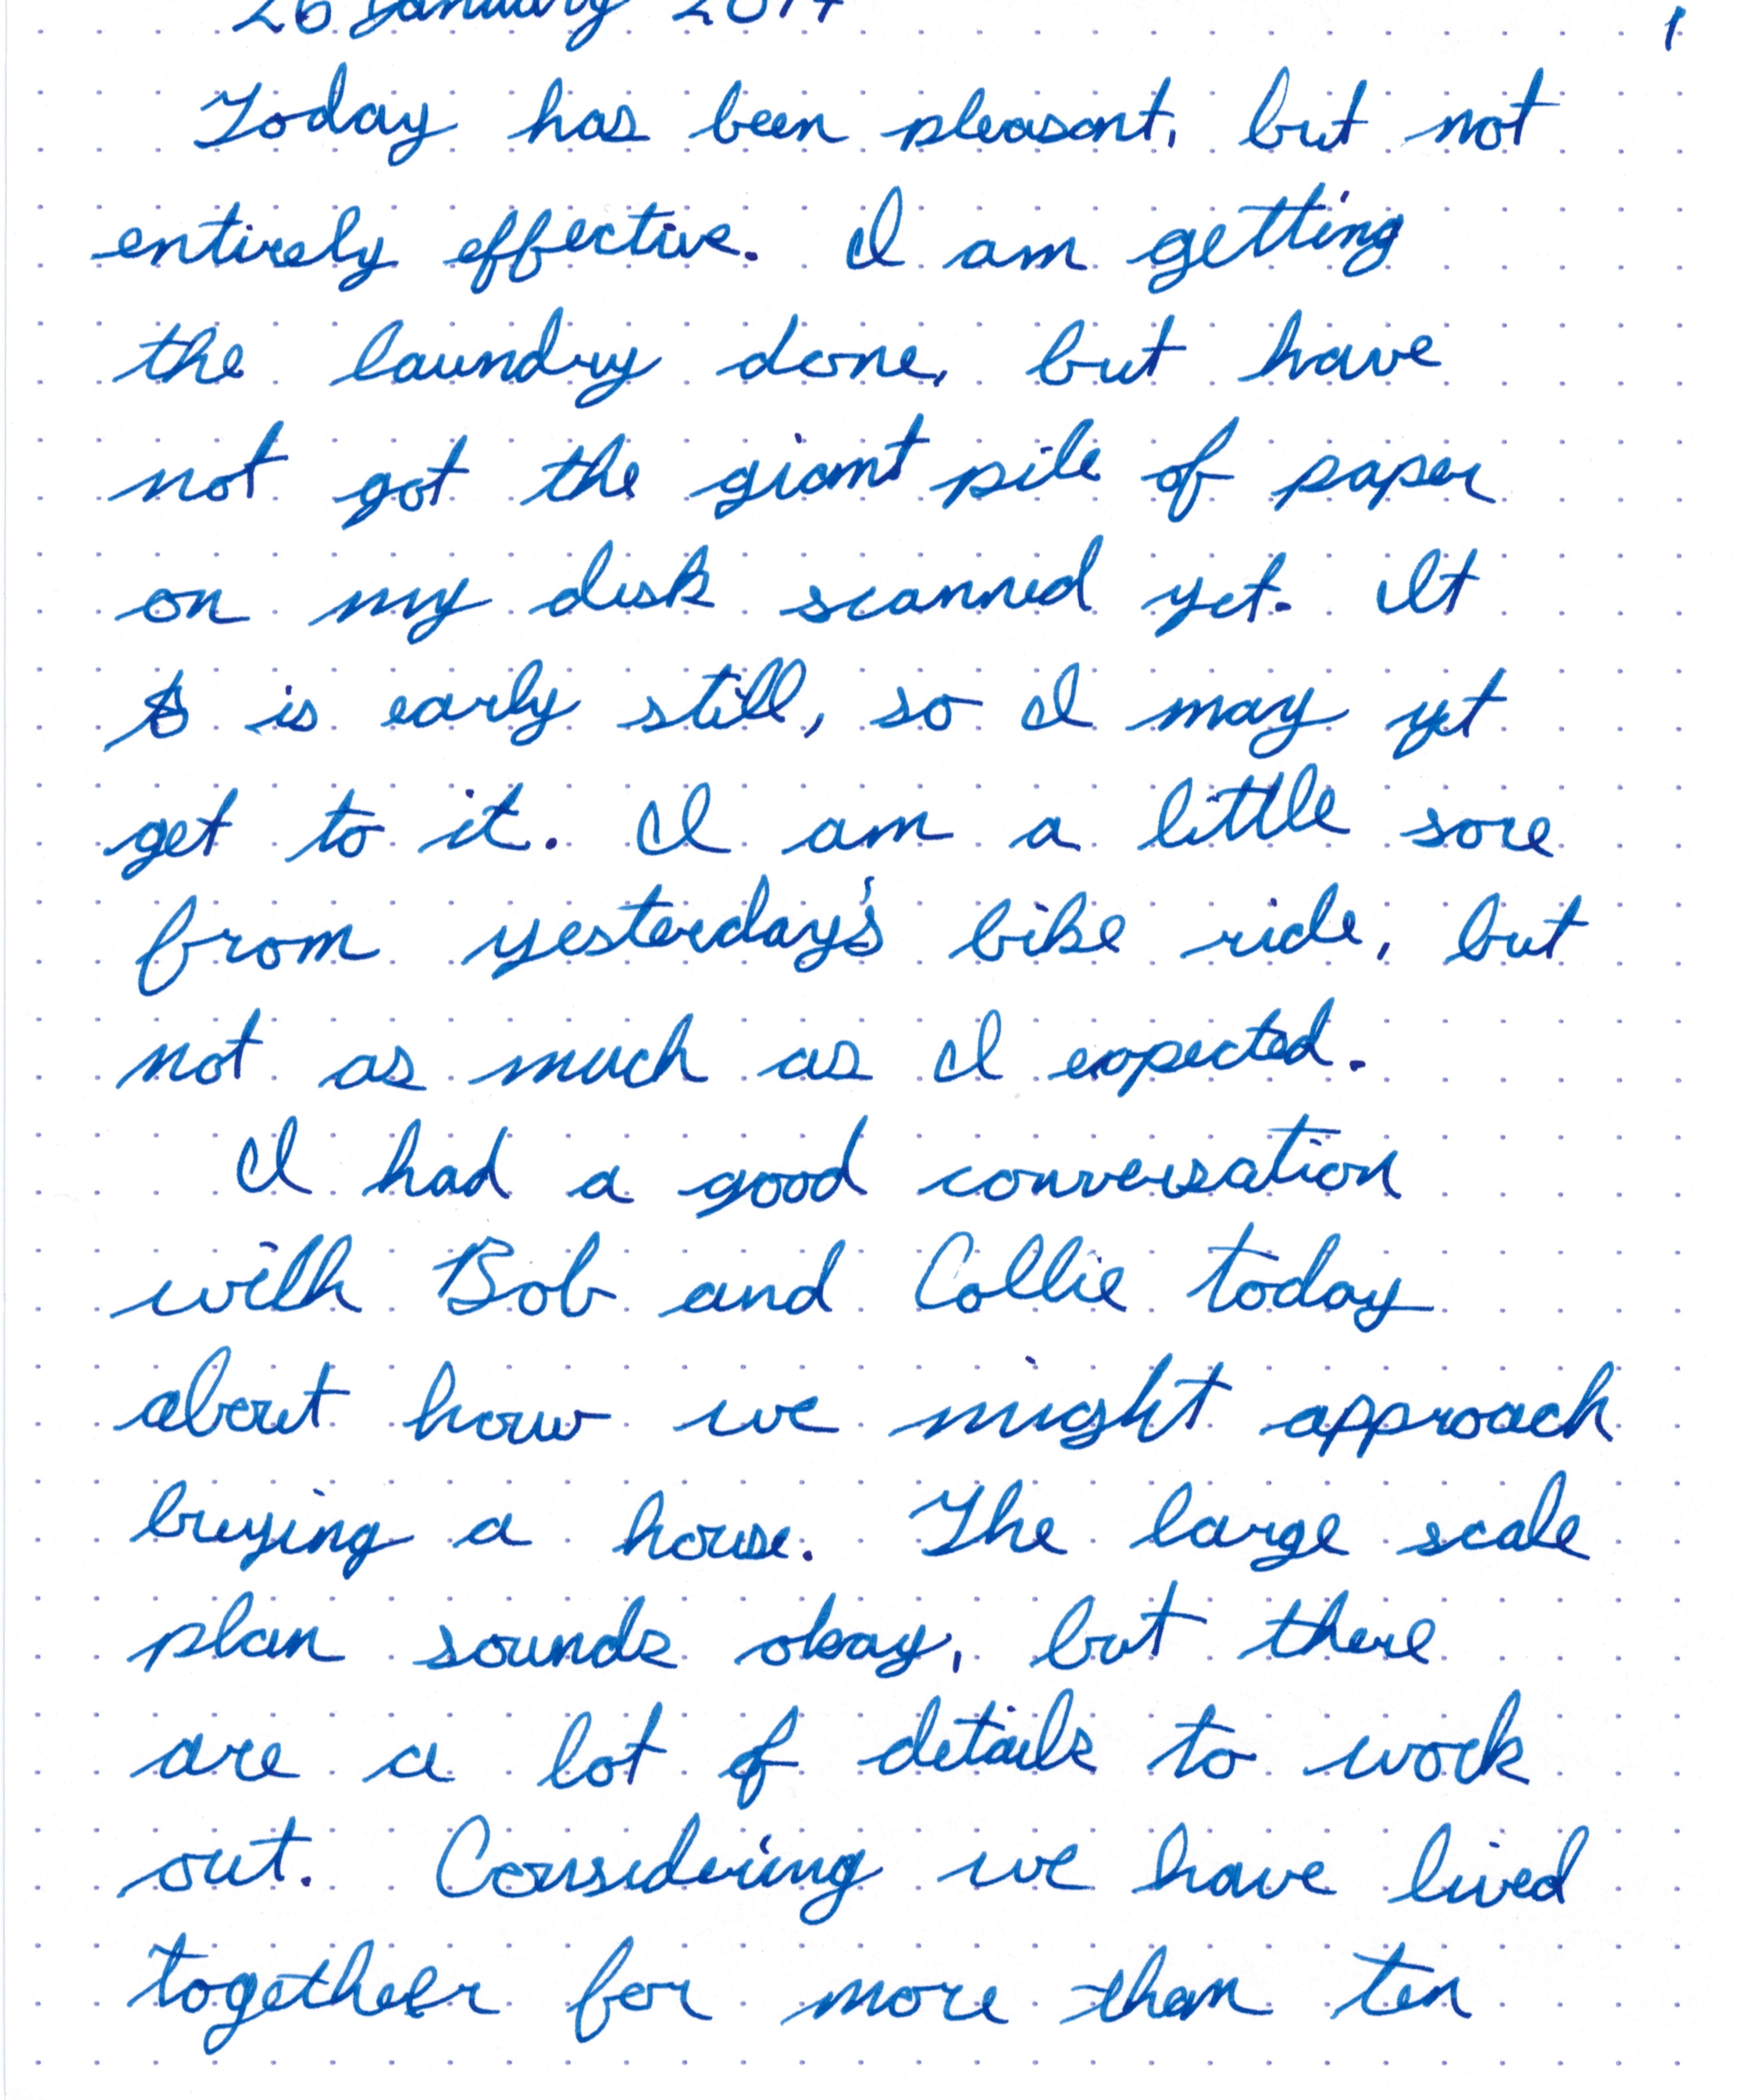 26 January 2014 1
Today has been pleasant, but not
entirely effective. I am getting
the laundry done, but have
not got the giant pile of paper
on my desk scanned yet. It
is early still, so I may yet
get to it. I am a little sore
from yesterday's bike ride, but
not as much as I expected.
I had a good conversation
with Bob and Collie today
about how we might approach
buying a house. The large scale
plan sounds okay, but there
are a lot of details to work
out. Considering we have lived
together for more than ten